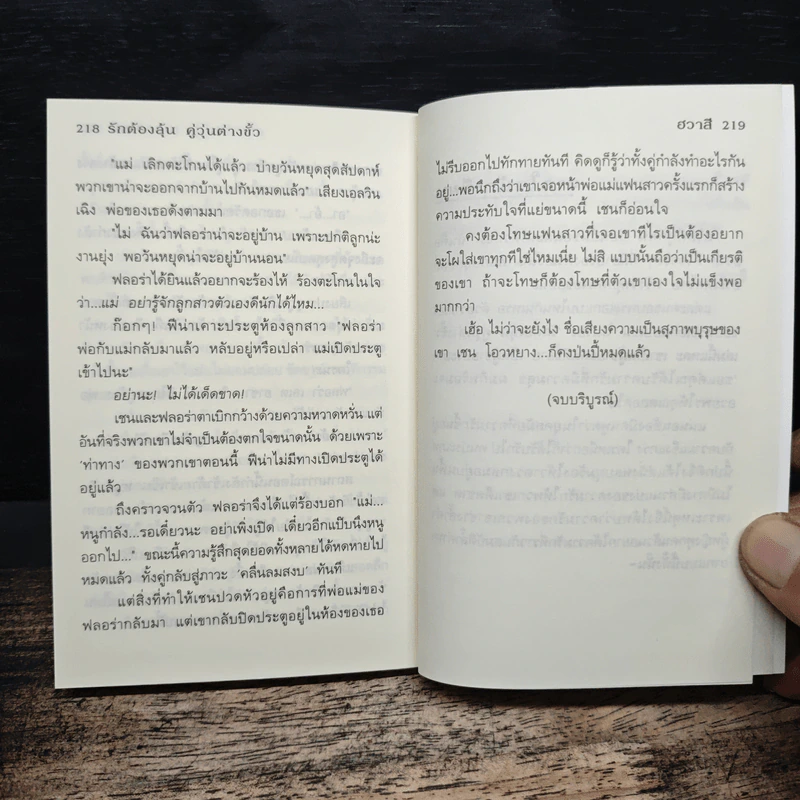 218 รักต้องลุ้น คู่วุ่นต่างขั้ว
"แม่ เลิกตะโกนได้แล้ว บ่ายวันหยุดสุดสัปดาห์
พวกเขาน่าจะออกจากบ้านไปกันหมดแล้ว" เสียงเอลวิน
เฉิง พ่อของเธอดังตามมา
"ไม่ ฉันว่าฟลอร่าน่าจะอยู่บ้าน เพราะปกติลูกน่ะ
งานยุ่ง พอวันหยุดน่าจะอยู่บ้านนอน"
ฟลอร่าได้ยินแล้วอยากจะร้องไห้ ร้องตะโกนในใจ
ว่า...แม่ อย่ารู้จักลูกสาวตัวเองดีนักได้ไหม...
ก๊อกๆ! ฟีน่าเคาะประตูห้องลูกสาว "ฟลอร่า
พ่อกับแม่กลับมาแล้ว หลับอยู่หรือเปล่า แม่เปิดประตู
เข้าไปนะ"
อย่านะ! ไม่ได้เด็ดขาด!
เชนและฟลอร่าตาเบิกกว้างด้วยความหวาดหวั่น แต่
อันที่จริงพวกเขาไม่จำเป็นต้องตกใจขนาดนั้น ด้วยเพราะ
'ท่าทาง' ของพวกเขาตอนนี้ ฟีน่าไม่มีทางเปิดประตูได้
อยู่แล้ว
ถึงคราวจวนตัว ฟลอร่าจึงได้แต่ร้องบอก "แม่...
หนูกำลัง...รอเดี๋ยวนะ อย่าเพิ่งเปิด เดี๋ยวอีกแป๊บนึงหนู
ออกไป..." ขณะนี้ความรู้สึกสุดยอดทั้งหลายได้หดหายไป
หมดแล้ว ทั้งคู่กลับสู่ภาวะ 'คลื่นลมสงบ' ทันที
แต่สิ่งที่ทำให้เชนปวดหัวอยู่คือการที่พ่อแม่ของ
ฟลอร่ากลับมา แต่เขากลับปิดประตูอยู่ในห้องของเธอ
ฮวาสี 219
ไม่รีบออกไปทักทายทันที คิดดูก็รู้ว่าทั้งคู่กำลังทำอะไรกัน
อยู่...พอนึกถึงว่าเขาเจอหน้าพ่อแม่แฟนสาวครั้งแรกก็สร้าง
ความประทับใจที่แย่ขนาดนี้ เชนก็อ่อนใจ
คงต้องโทษแฟนสาวที่เจอเขาทีไรเป็นต้องอยาก
จะโผใส่เขาทุกทีใช่ไหมเนี่ย ไม่สิ แบบนั้นถือว่าเป็นเกียรติ
ของเขา ถ้าจะโทษก็ต้องโทษที่ตัวเขาเองใจไม่แข็งพอ
มากกว่า
เฮ้อ ไม่ว่าจะยังไง ชื่อเสียงความเป็นสุภาพบุรุษของ
เขา เชน โอวหยาง...ก็คงป่นปี้หมดแล้ว
(จบบริบูรณ์)